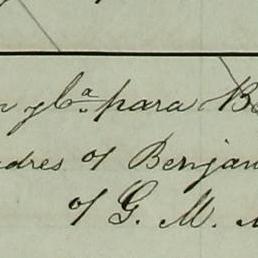 n y Ca. para B
dres of Benjam
of G. M.